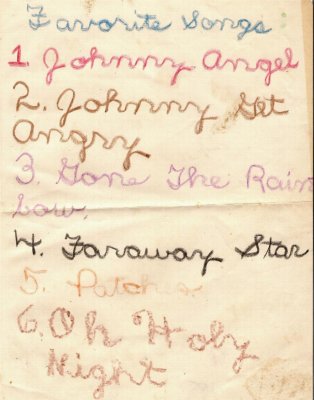 Favorite Songs
1. Johnny Angel
2. Johnny Get
Angry
3. Gone The Rain
bow.
4. Faraway Star
5. Patches
6. Oh Holy
Night